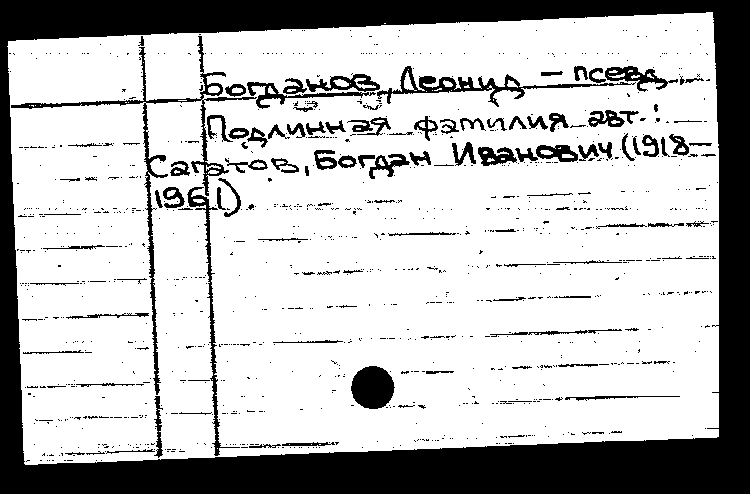 Богданов, Леонид – псевд.
Подлинная фамилия авт.:
Сагатов, Богдан Иванович (1918–
1961).